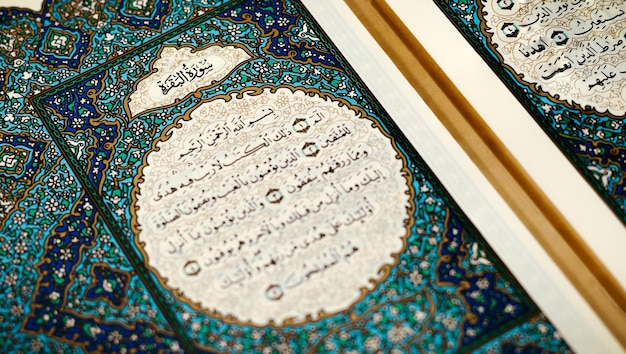 سُورَةُ الْبَقَرَةِ
بِسْمِ اللَّهِ الرَّحْمَٰنِ الرَّحِيمِ
الٓمٓ ذَٰلِكَ الْكِتَابُ لَا رَيْبَ فِيهِ هُدًى
لِلْمُتَّقِينَ الَّذِينَ يُؤْمِنُونَ بِالْغَيْبِ وَيُقِيمُونَ الصَّلَاةَ
وَمِمَّا رَزَقْنَاهُمْ يُنْفِقُونَ وَالَّذِينَ يُؤْمِنُونَ بِمَا أُنْزِلَ
إِلَيْكَ وَمَا أُنْزِلَ مِنْ قَبْلِكَ وَبِالْآخِرَةِ هُمْ يُوقِنُونَ
أُولَٰئِكَ عَلَىٰ هُدًى مِنْ رَبِّهِمْ وَأُولَٰئِكَ
هُمُ الْمُفْلِحُونَ
يَوْمِ الدِّينِ
نَسْتَعِينُ اهْدِنَا
صِرَاطَ الَّذِينَ أَنْعَمْتَ
عَلَيْهِمْ